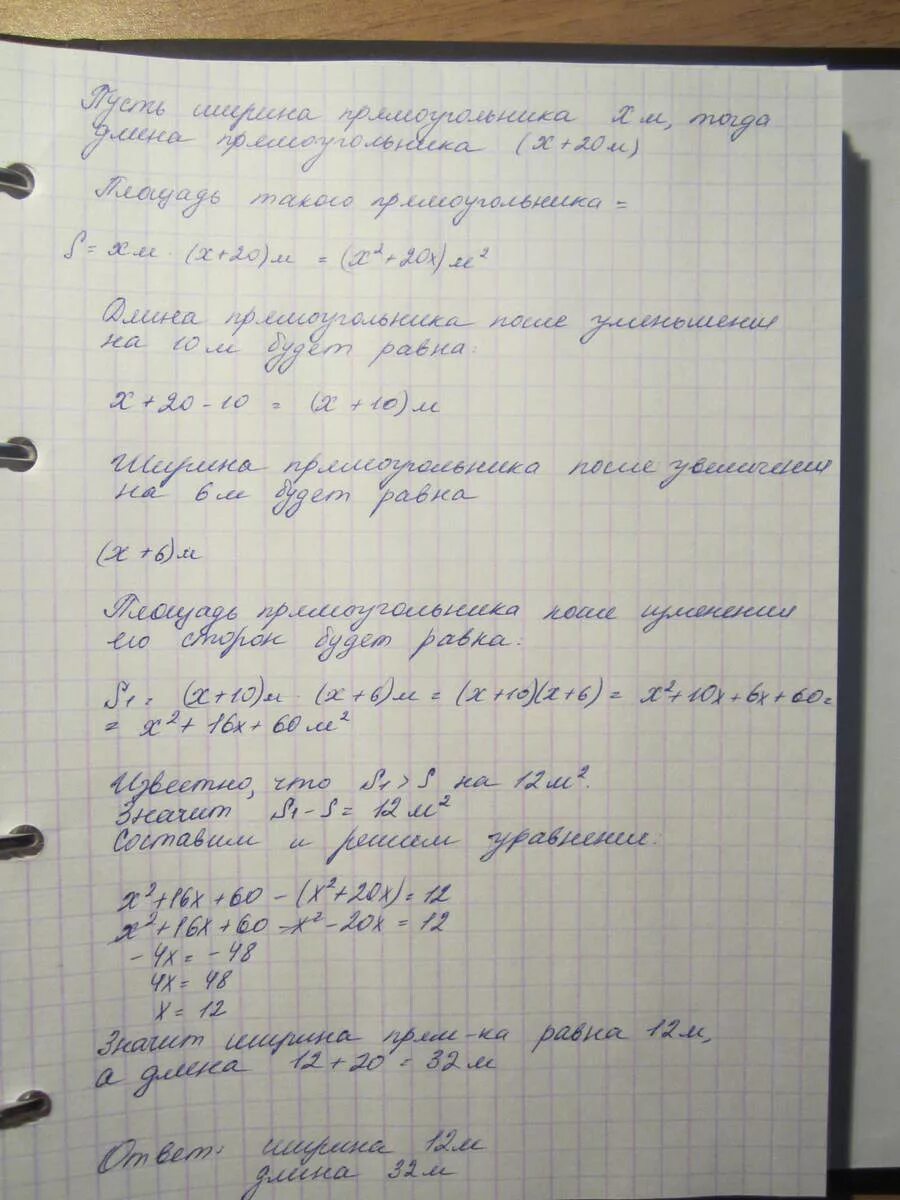 Пусть ширина прямоугольника x м, тогда
длина прямоугольника (x+20м)
Площадь такого прямоугольника =
S = xм · (x+20)м = (x²+20x)м²
Длина прямоугольника после уменьшения
на 10м будет равна:
x+20-10 = (x+10)м
Ширина прямоугольника после увеличения
на 6м будет равна
(x+6)м
Площадь прямоугольника после изменения
его сторон будет равна:
S₁ = (x+10)м · (x+6)м = (x+10)(x+6) = x²+10x+6x+60=
= x²+16x+60м²
Известно, что S₁>S на 12м².
Значит S₁-S=12м²
Составим и решим уравнение:
x²+16x+60-(x²+20x)=12
x²+16x+60-x²-20x=12
-4x=-48
4x=48
x=12
Значит ширина прям-ка равна 12м,
а длина 12+20=32м
Ответ: ширина 12м
длина 32м